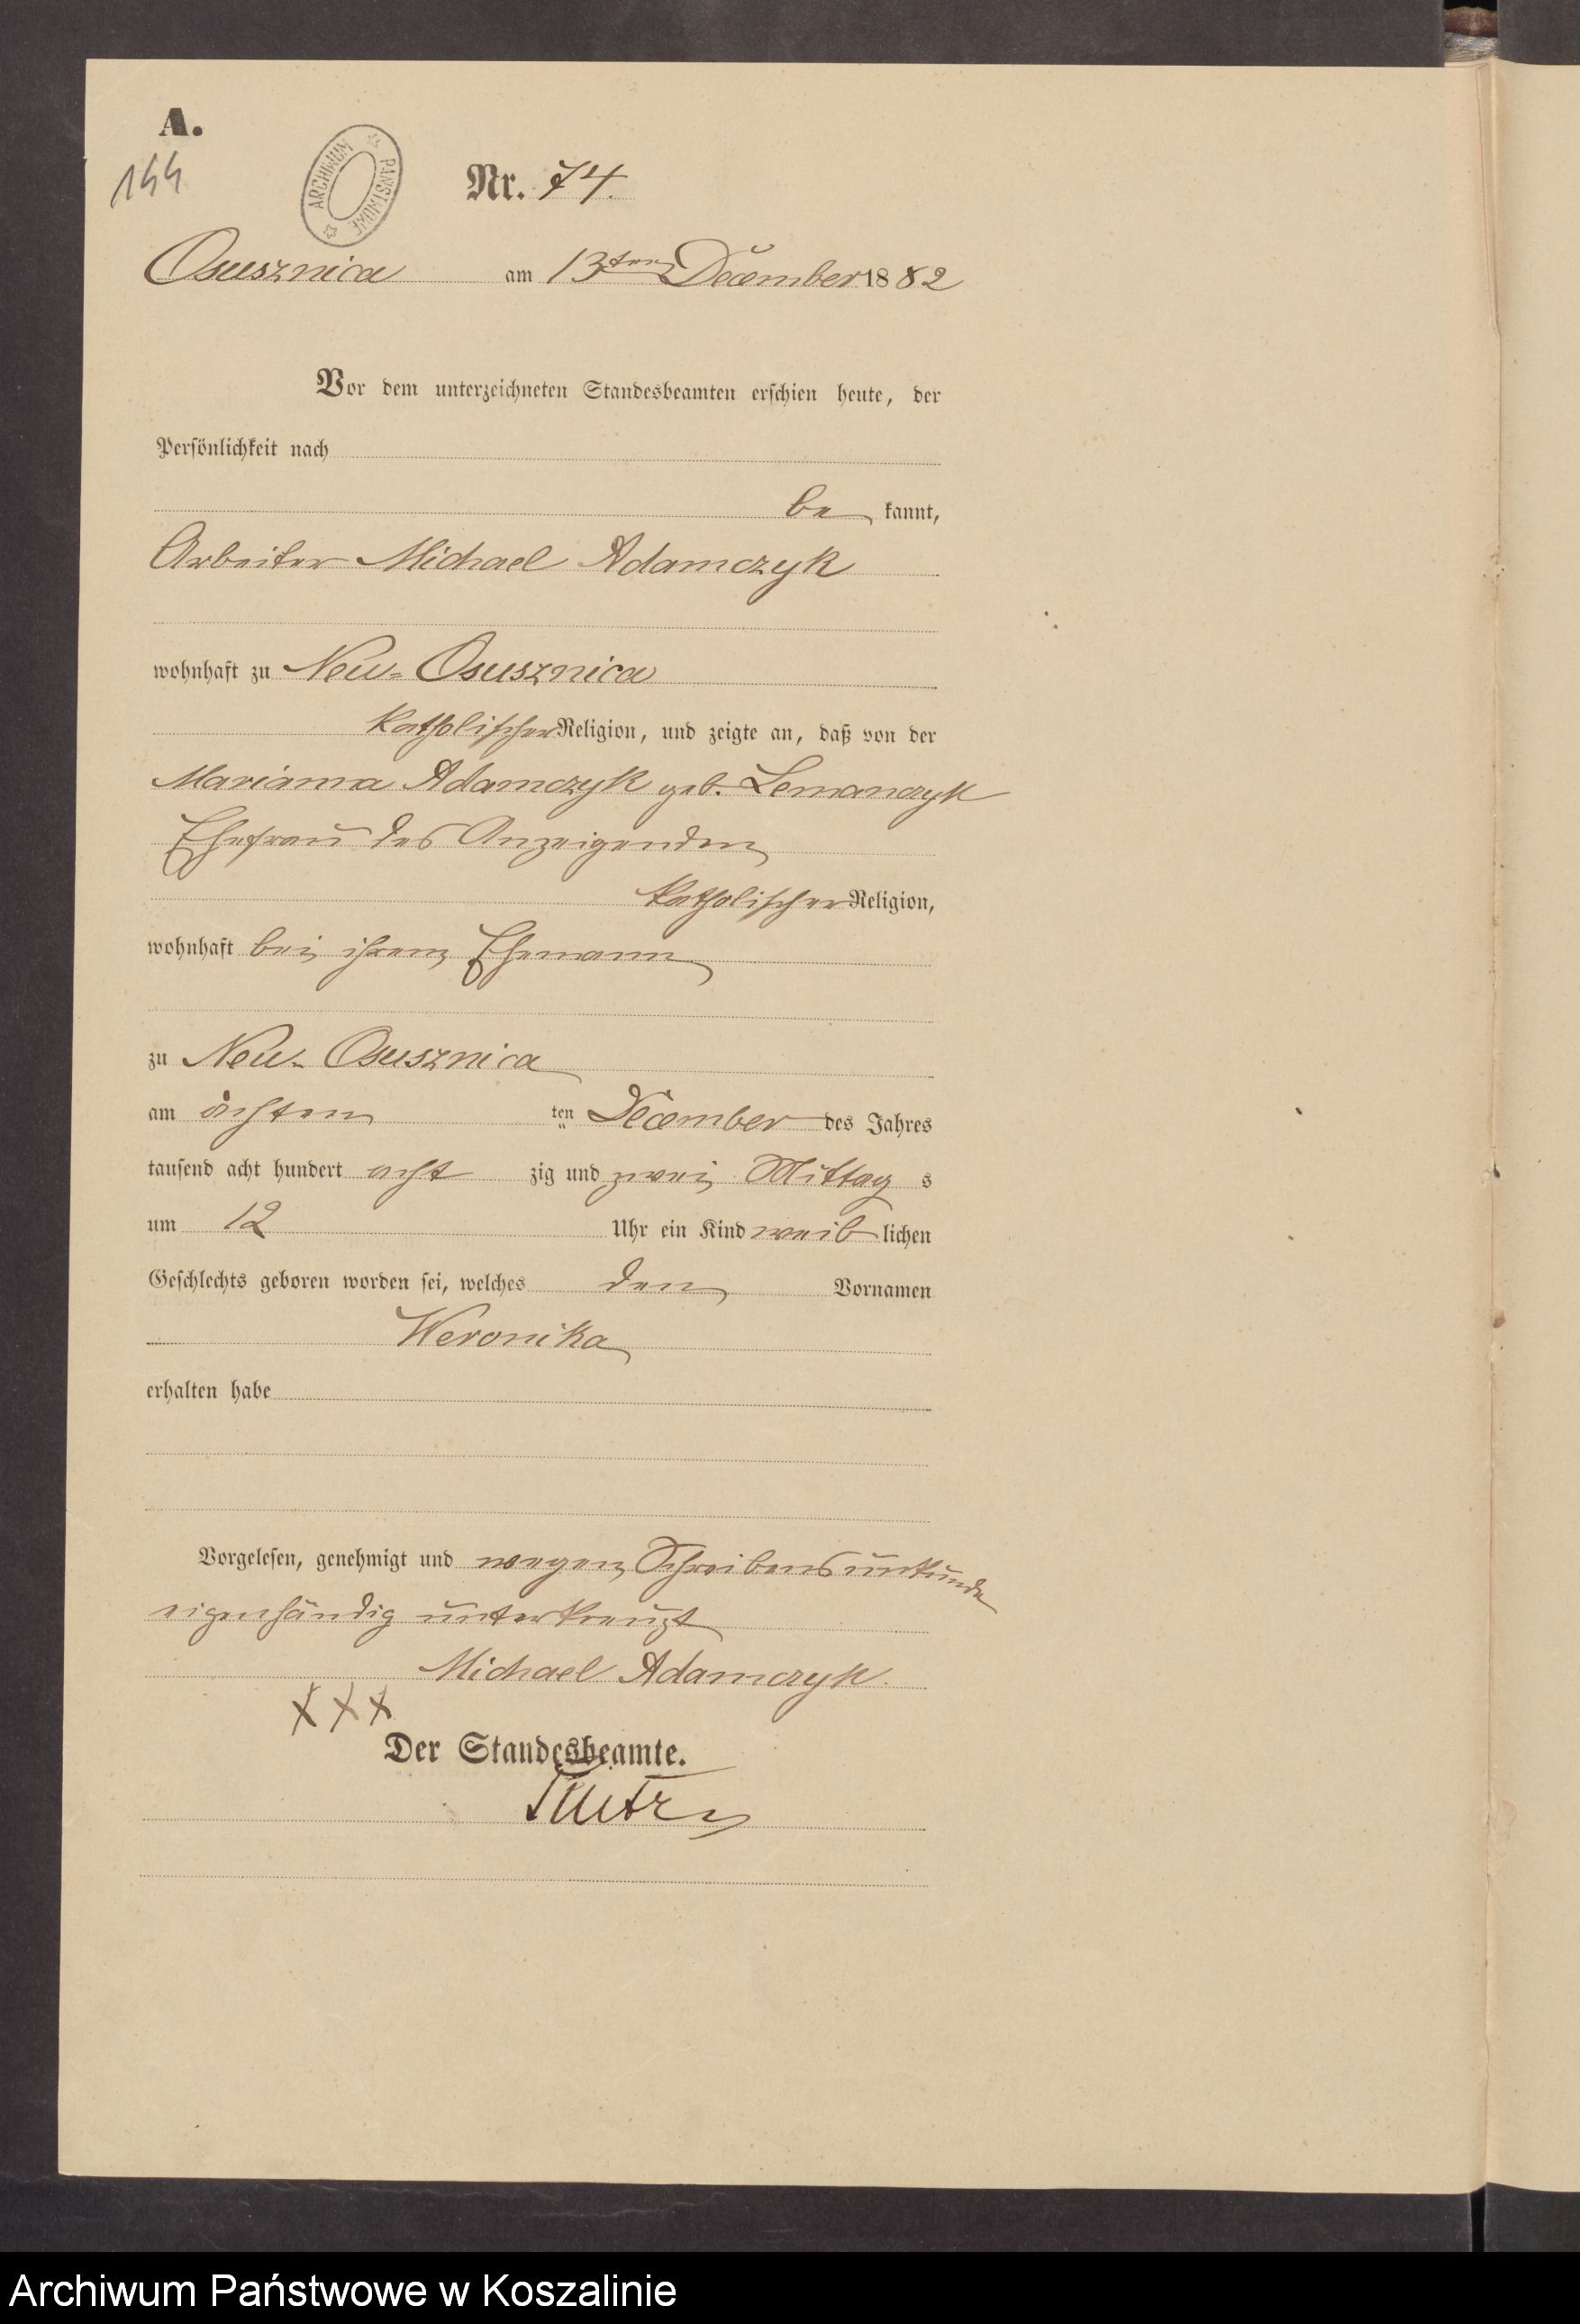 A.
144
ARCHIWUM PAŃSTWOWE
Nr. 74.
Osusznica am 13ten December 1882
Vor dem unterzeichneten Standesbeamten erschien heute, der
Persönlichkeit nach
be kannt,
Arbeiter Michael Adamczyk
wohnhaft zu Neu-Osusznica
katholischer Religion, und zeigte an, daß von der
Marianna Adamczyk geb. Lemanczyk
Ehefrau des Anzeigenden
katholischer Religion,
wohnhaft bei ihrem Ehemann
zu Neu-Osusznica
am achten ten December des Jahres
tausend acht hundert acht zig und zwei Mittag s
um 12 Uhr ein Kind weib lichen
Geschlechts geboren worden sei, welches den Vornamen
Weronika
erhalten habe
Vorgelesen, genehmigt und wegen Schreibensunkunde
eigenhändig unterkreuzt
Michael Adamczyk.
XXX
Der Standesbeamte.
Archiwum Państwowe w Koszalinie